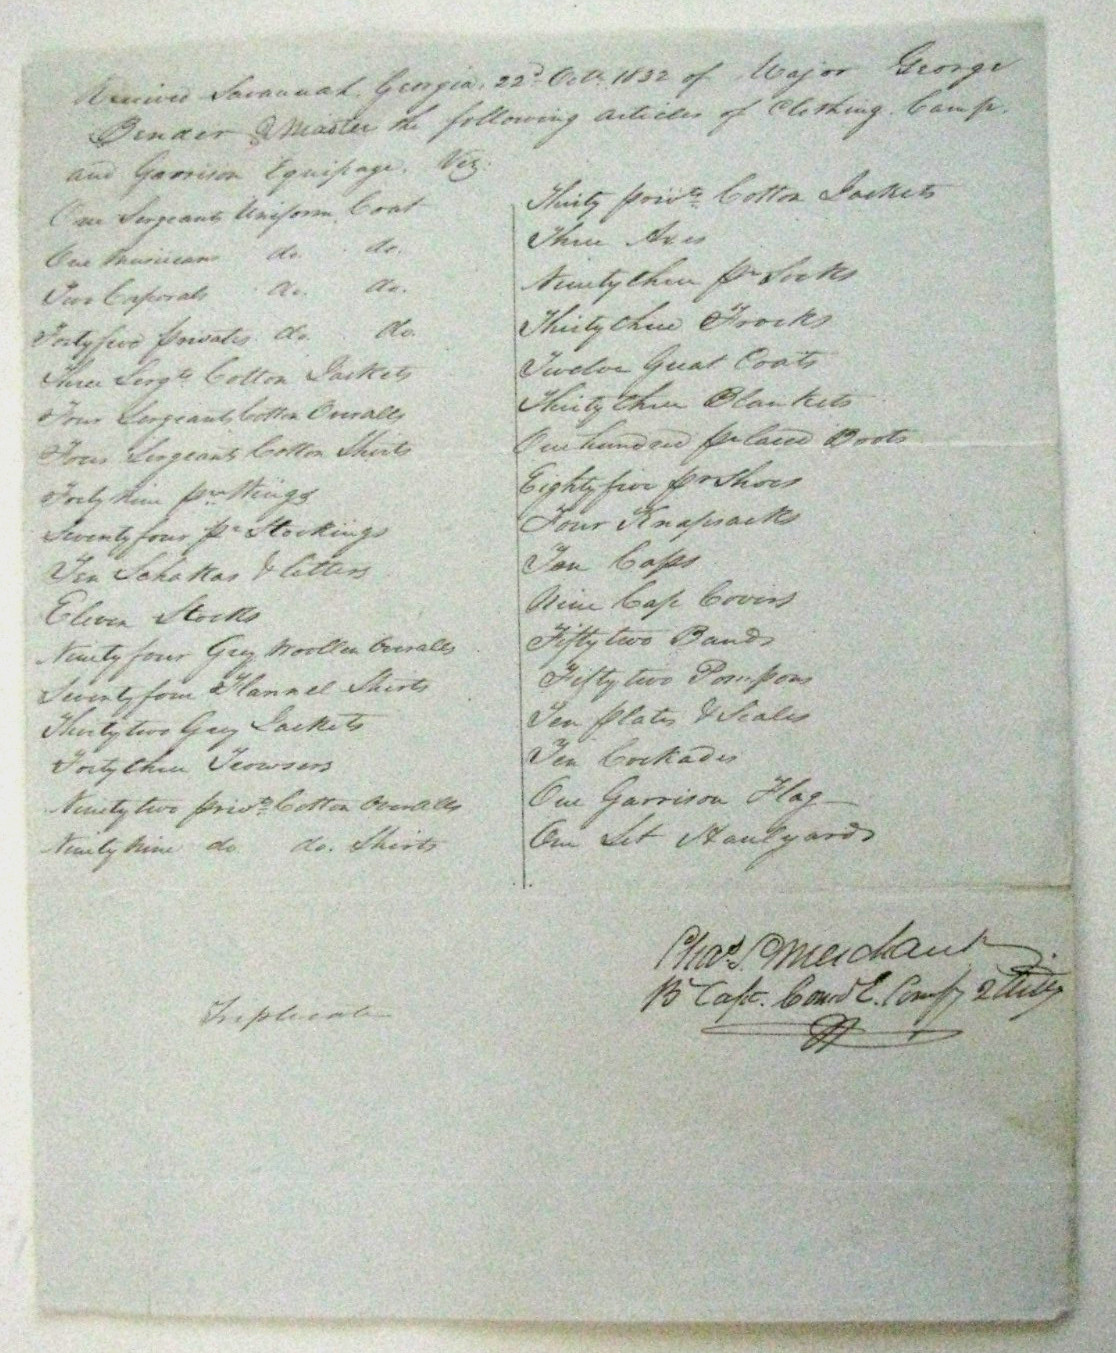 Received Savannah, Georgia, 22d Octr. 1832 of Major George
Bender Q Master the following articles of Clothing. Camp.
and Garrison Equipage. Viz.
One Sergeants Uniform Coat
One Musicians do. do.
Two Corporals do. do.
Forty five privates do. do.
Three Sergts Cotton Jackets
Four Sergeants Cotton Overalls
Four Sergeants Cotton Shirts
Forty nine pr Wings
Seventy four pr Stockings
Ten Schakas &
Eleven Stocks
Ninety four Grey Woollen Overalls
Seventy four Flannel Shirts
Thirty two Grey Jackets
Forty three Trowsers
Ninety two privts Cotton Overalls
Ninety nine do do. Shirts
Thirty privts Cotton Jackets
Three Axes
Ninety three pr Socks
Thirty three Frocks
Twelve Great Coats
Thirty three Blankets
One hundred pr laced Boots
Eighty five pr Shoes
Four Knapsacks
Ten Caps
Nine Cap Covers
Fifty two Bands
Fifty two Pompons
Ten plates & Scales
Ten Cockades
One Garrison Flag
One Set Haulyards
Chas. S. Merchant
Bt Capt. Comd E. Compy 2 Arty
Triplicate